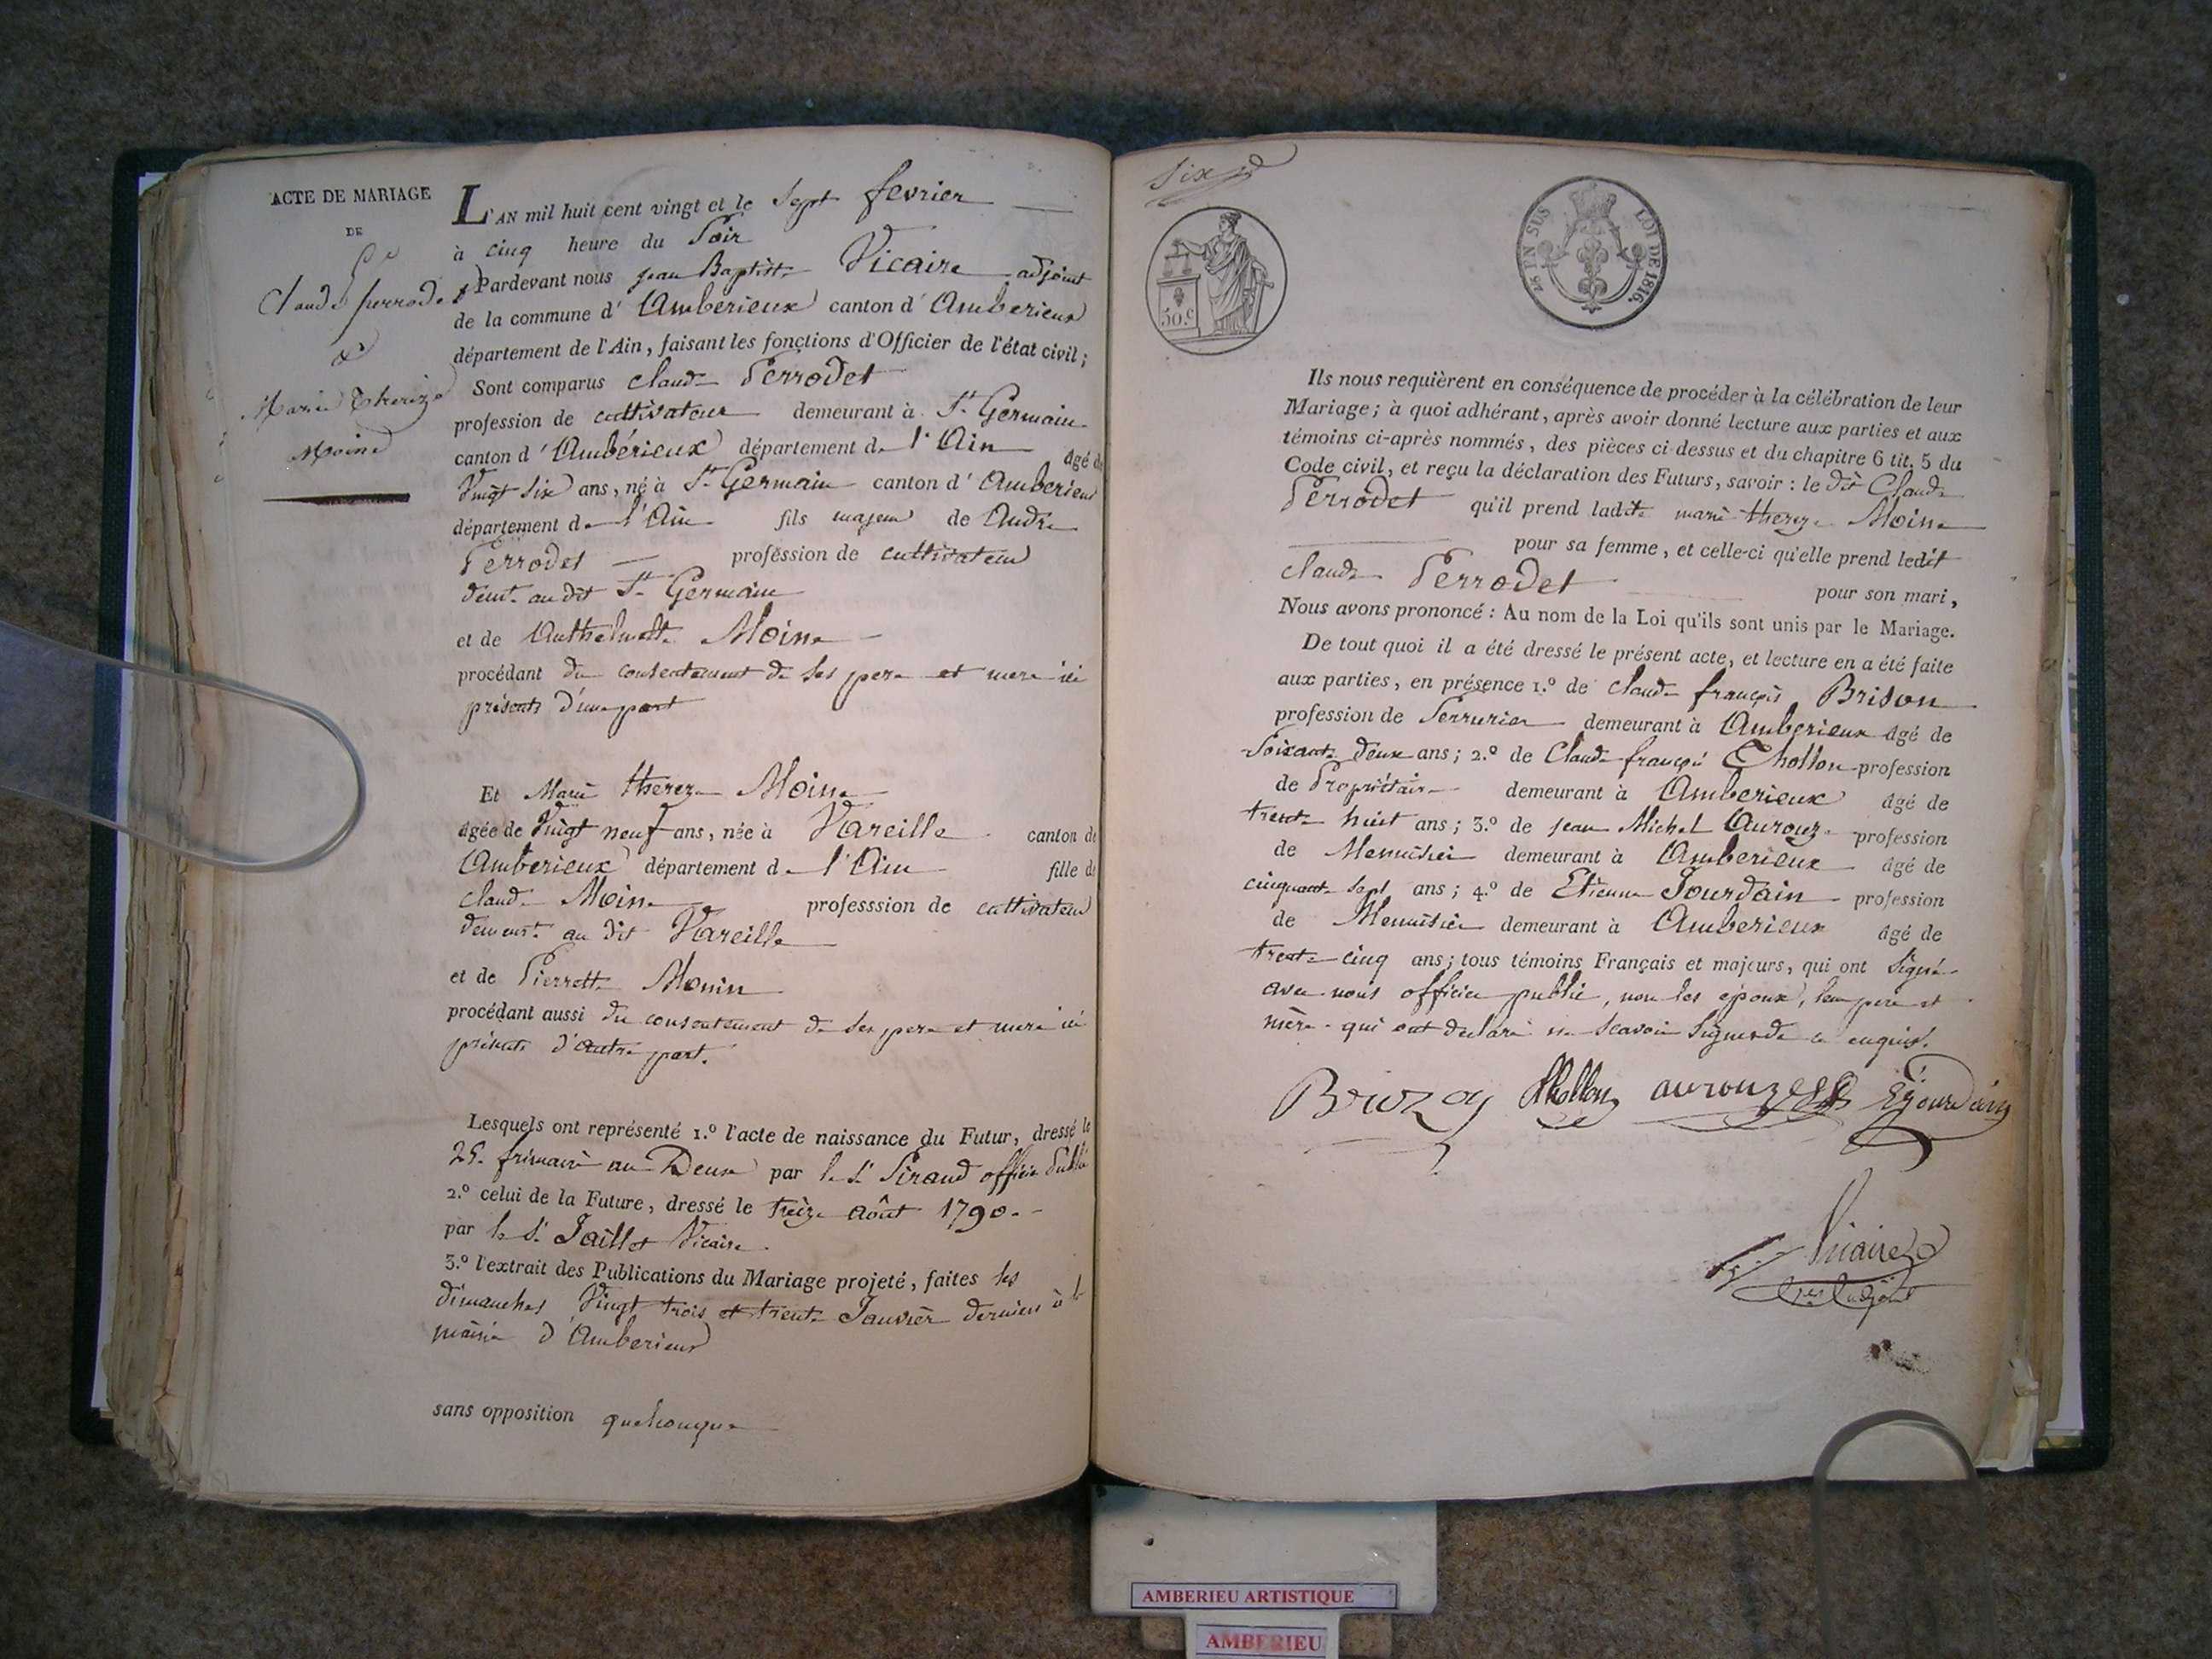 ACTE DE MARIAGE
DE
Claude perrodet
&
Marie Thereze
Moine
L'AN mil huit cent vingt et le Sept fevrier
à cinq heure du Soir
Pardevant nous jean Baptiste Vicaire adjoint
de la commune d'Amberieux canton d'Amberieux
département de l'Ain, faisant les fonctions d'Officier de l'état civil;
Sont comparus claude Perrodet
profession de cultivateur demeurant à St Germain
canton d'Ambérieux département de l'Ain âgé de
Vingt Six ans, né à St Germain canton d'Amberieux
département de l'Ain fils majeur de André
Perrodet profession de cultivateur
demt. au dit St Germain
et de Anthelmette Moine
procédant du consentement de ses pere et mere ici
présents d'une part
Et Marie thereze Moine
âgée de Vingt neuf ans, née à Vareille canton de
Amberieux département de l'Ain fille de
claude Moine professsion de cultivateur
demeurt. au dit Vareille
et de Pierrette Monin
procédant aussi du consentement de ses pere et mere ici
présents d'autre part.
Lesquels ont représenté 1.º l'acte de naissance du Futur, dressé le
25. frimaire an Deux par le Sr Sirand officier Public
2.º celui de la Future, dressé le treize Août 1790.
par le Sr. Jaillet Vicaire.
3.º l'extrait des Publications du Mariage projeté, faites les
dimanches Vingt trois et trente Janvier dernier à la
mairie d'Amberieux
sans opposition quelconque
Six
50.c
EN SUS LOI DE 1816.
Ils nous requièrent en conséquence de procéder à la célébration de leur
Mariage; à quoi adhérant, après avoir donné lecture aux parties et aux
témoins ci-après nommés, des pièces ci-dessus et du chapitre 6 tit. 5 du
Code civil, et reçu la déclaration des Futurs, savoir : le dit Claude
Perrodet qu'il prend ladite marie thereze Moine
pour sa femme, et celle-ci qu'elle prend ledit
claude Perrodet pour son mari,
Nous avons prononcé : Au nom de la Loi qu'ils sont unis par le Mariage.
De tout quoi il a été dressé le présent acte, et lecture en a été faite
aux parties, en présence 1.º de claude françois Brison
profession de Serrurier demeurant à Amberieux âgé de
Soixante deux ans; 2.º de Claude françois Thollon profession
de Propriétaire demeurant à Amberieux âgé de
trente huit ans; 3.º de jean Michel Aurouze profession
de Menuisier demeurant à Amberieux âgé de
cinquante sept ans; 4.º de Etienne Jourdain profession
de Menuisier demeurant à Amberieux âgé de
trente cinq ans; tous témoins Français et majeurs, qui ont Signé
avec nous officier public, non les époux, leur pere et
mère qui ont declaré ne scavoir Signer de ce enquis.
Brizon Thollon aurouze Ejourdain
Vicaire
adjoint
AMBERIEU ARTISTIQUE
AMBERIEU